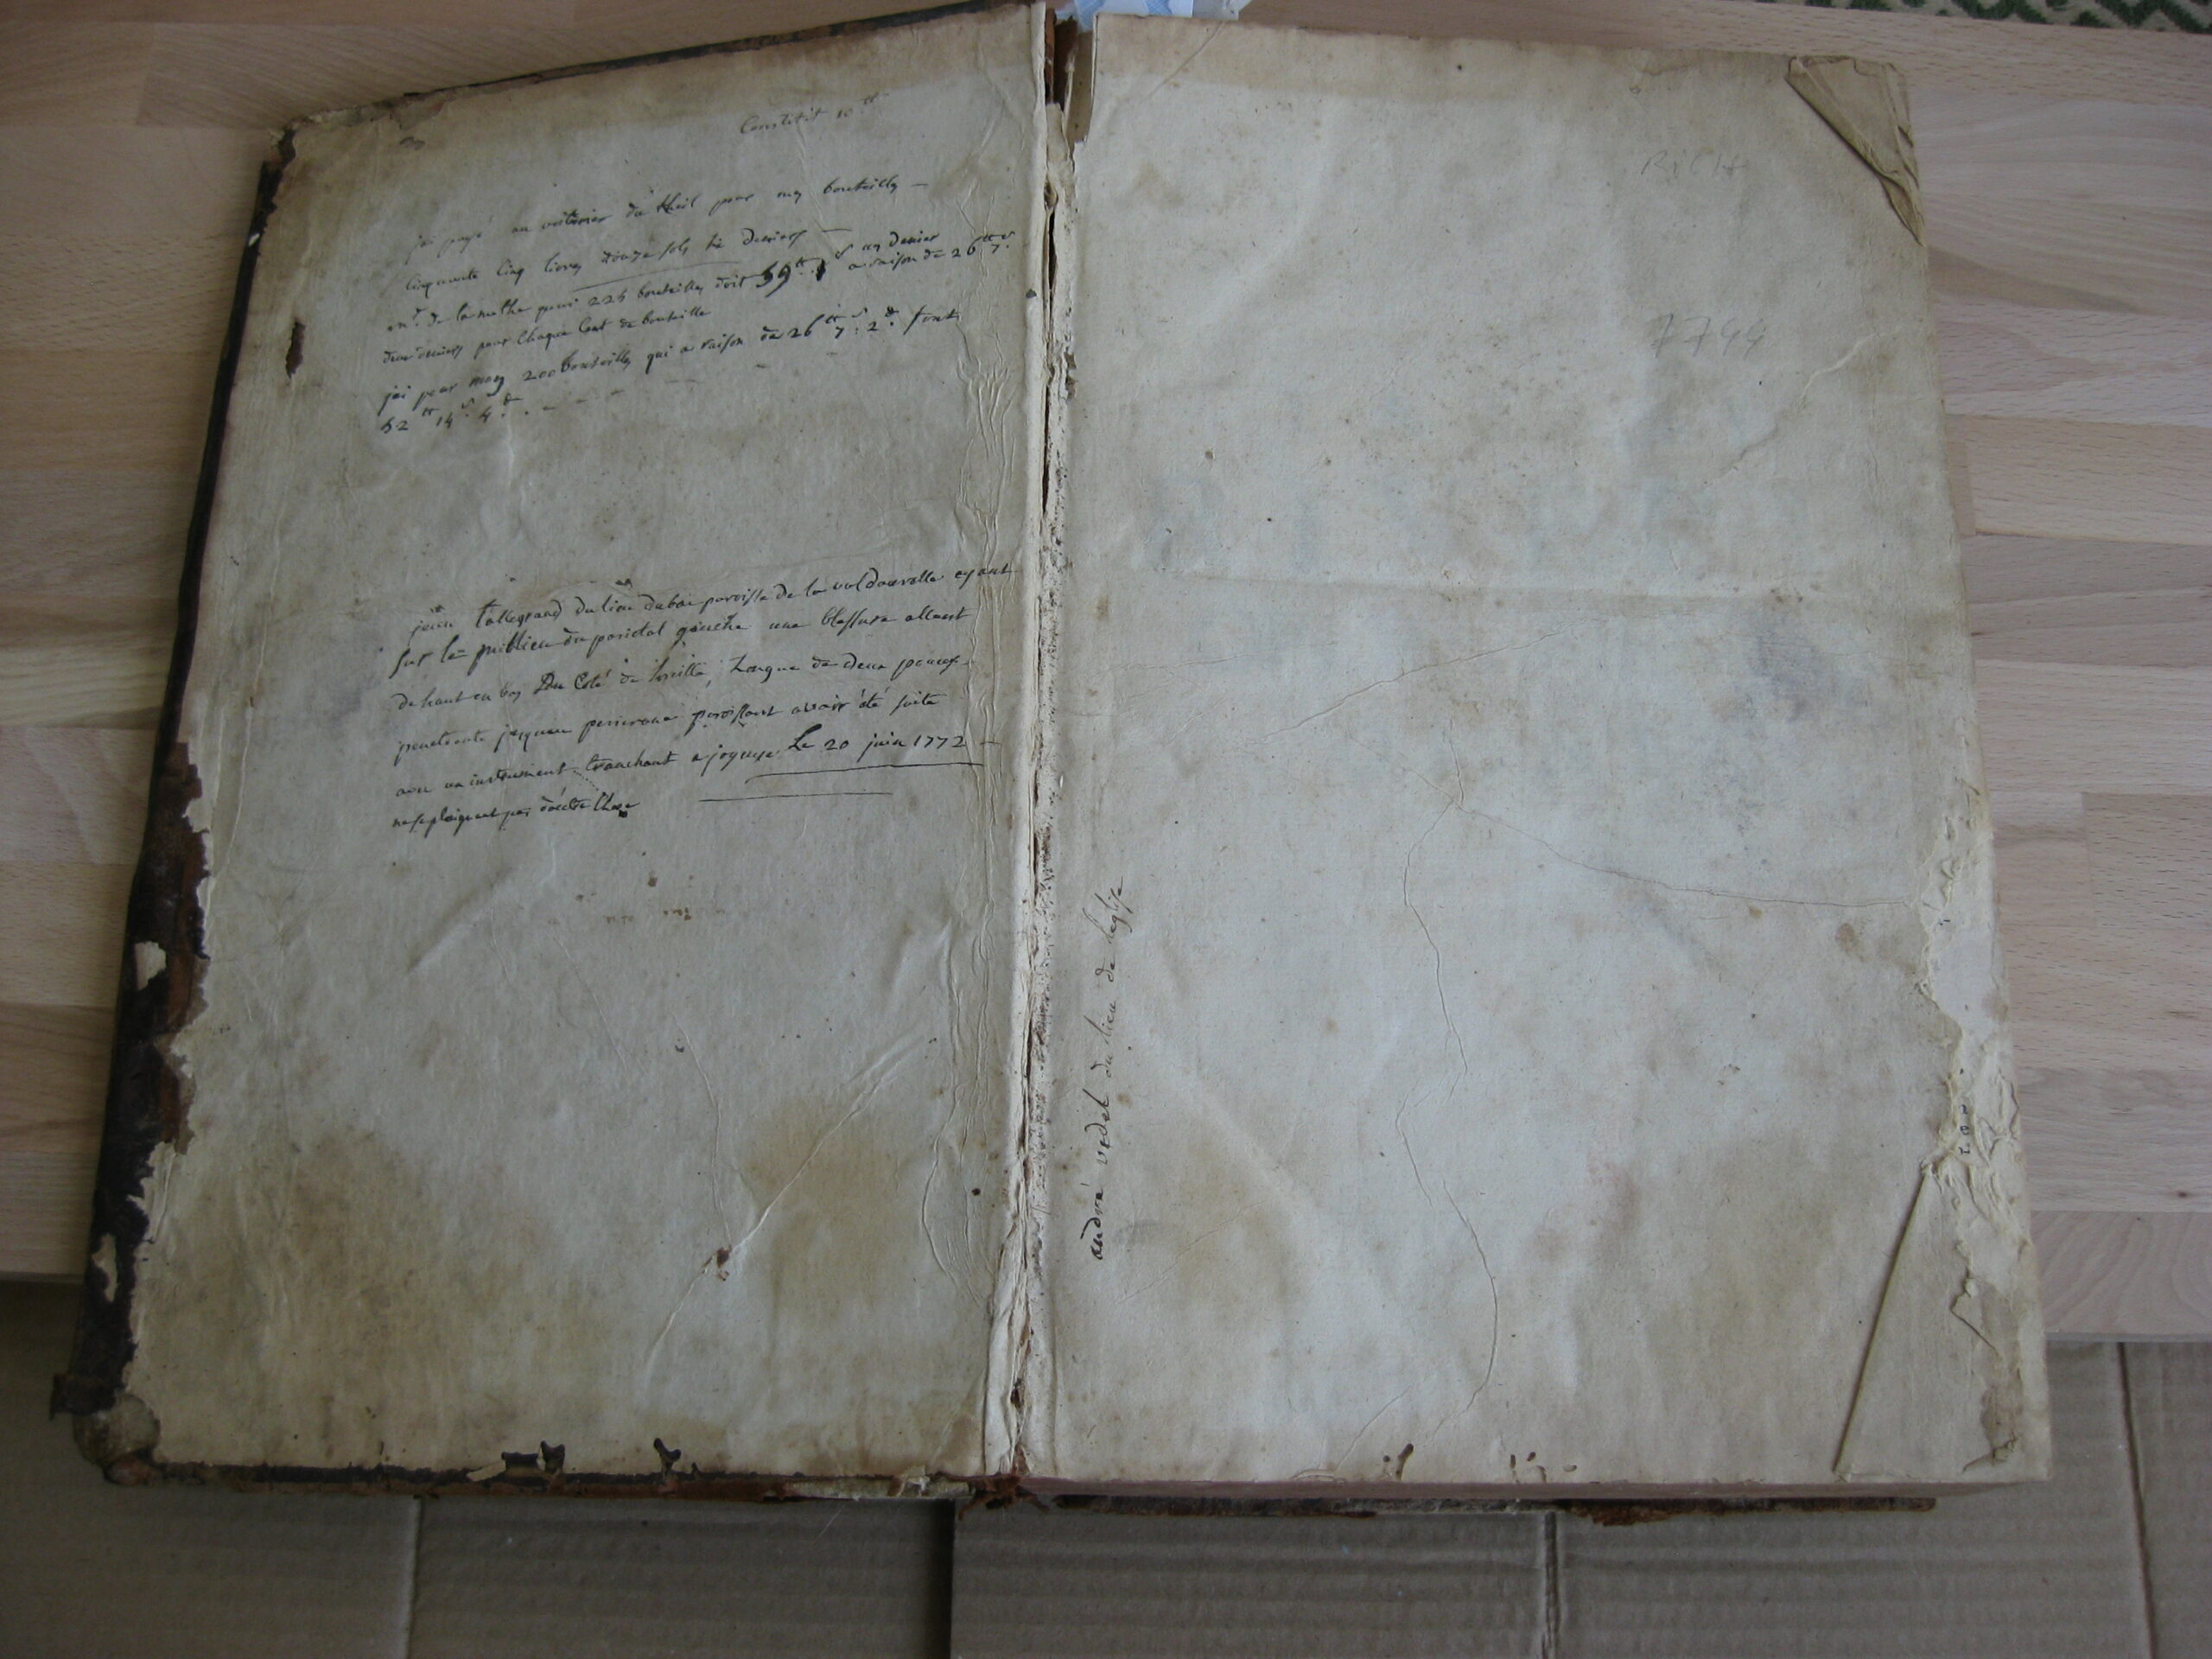 Constitit 10 tt
j'ai payé au voiturier du theil pour mes bouteilles —
cinquante cinq livres douze sols six deniers —
mr. de la mothe pour 226 bouteilles doit 59 tt 1 s un denier
a raison de 26 tt 7 s
deux deniers pour chaque cent de bouteille
jai pour moy 200 bouteilles qui a raison de 26 tt 7 s. 2 d. font
52 tt 14 s. 4 d.
jean tallagrand du lieu dubac paroisse de la valdaurelle ayant
sur le millieu du parietal gauche une blessure allant
de haut en bas Du Coté de loreille, Longue de deux pouces
penetrante jusquau pericrane paroissant avoir été faite
avec un instrument tranchant a joyeuse Le 20 juin 1772 —
ne se plaignant pas dautre Chose
7744
andré vedel du lieu de leglise